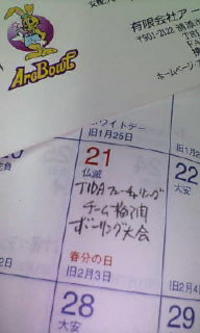 ArcBowl
有限会社アー
〒901-2122
ホームページ
ホワイトデー
旧1月25日
21
仏滅
22
大安
TIDAフューチャリング
チーム
ボーリング大会
春分の日
旧2月3日
旧2月4
28
大安
29